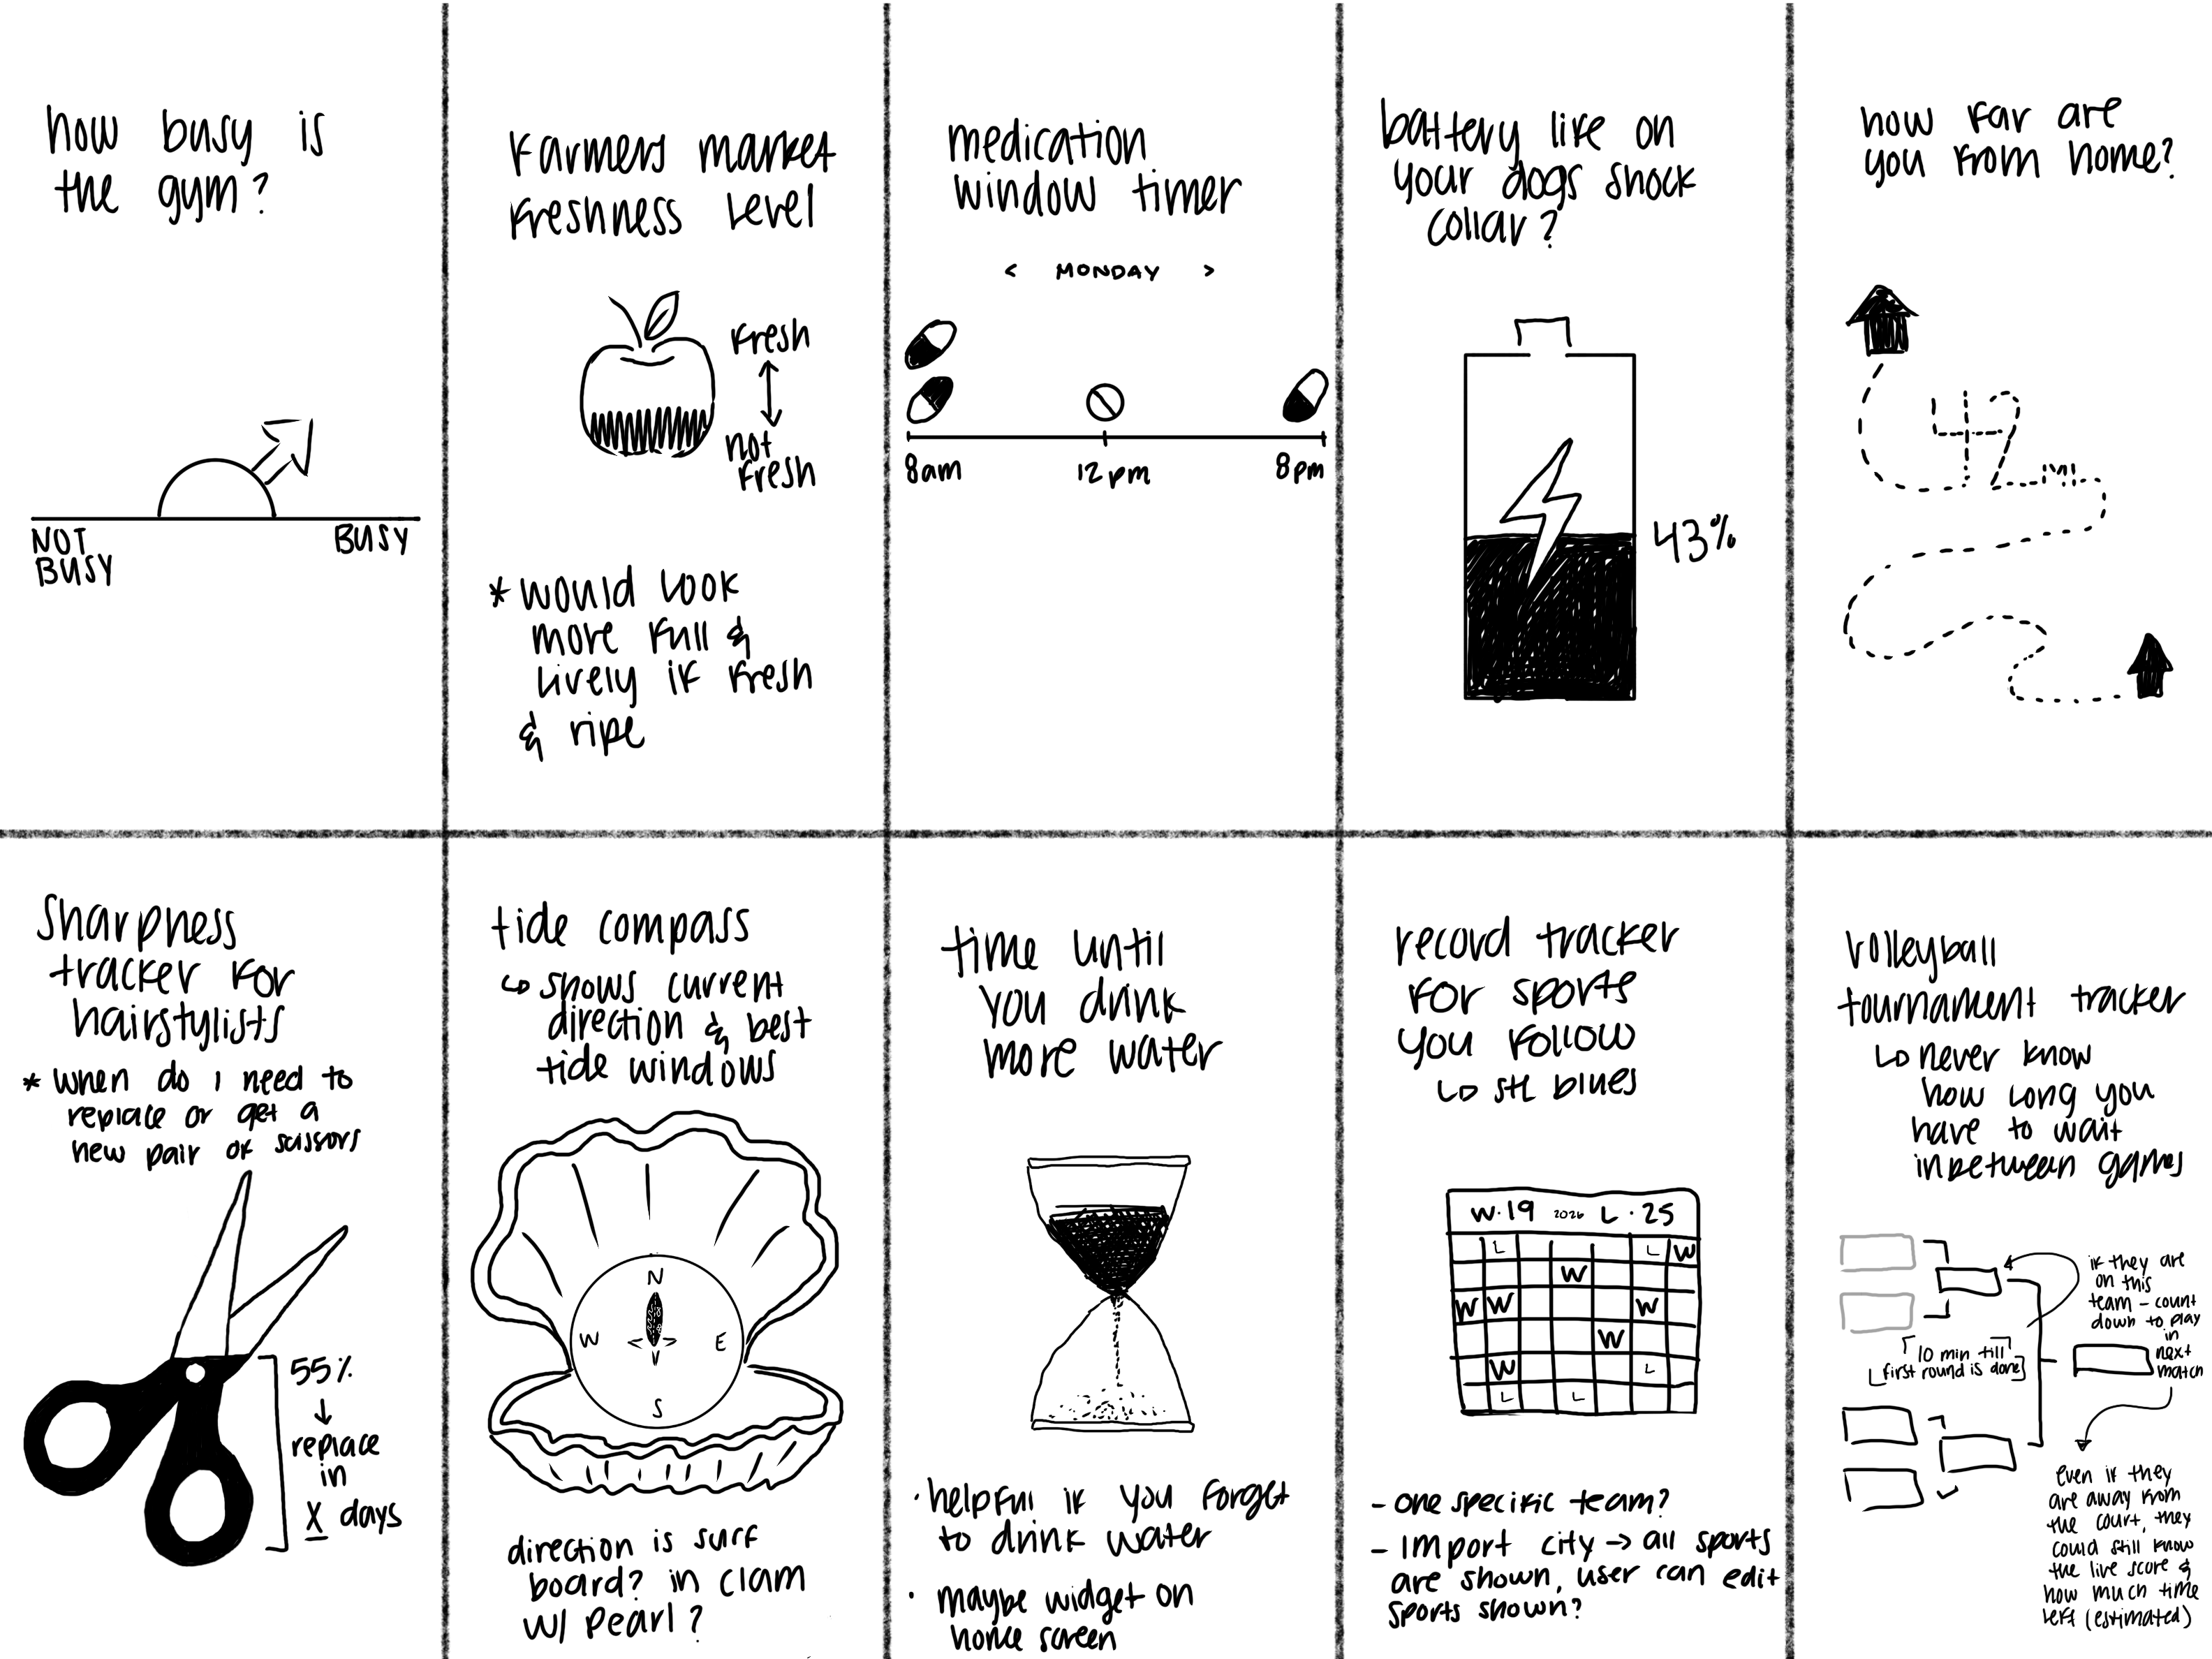 how busy is
the gym?
NOT
BUSY
BUSY
Farmers market
Freshness Level
Fresh
not
Fresh
* would look
more full &
lively if fresh
& ripe
medication
window timer
< MONDAY >
8am
12pm
8pm
battery life on
your dogs shock
collar?
43%
how far are
you from home?
42 mi
Sharpness
tracker for
hairstylists
* when do i need to
replace or get a
new pair of scissors
55%
↓
replace
in
X days
tide compass
↳ shows current
direction & best
tide windows
N
W
E
S
direction is surf
board? in clam
w/ pearl?
time until
you drink
more water
· helpful if you forget
to drink water
· maybe widget on
home screen
record tracker
for sports
you follow
↳ stl blues
W·19 2026 L·25
L L W
W
W W W
W
W L
L L
- one specific team?
- import city → all sports
are shown, user can edit
sports shown?
volleyball
tournament tracker
↳ never know
how long you
have to wait
inbetween games
if they are
on this
team - count
down to play
in
next
match
10 min till
first round is done
even if they
are away from
the court, they
could still know
the live score &
how much time
left (estimated)